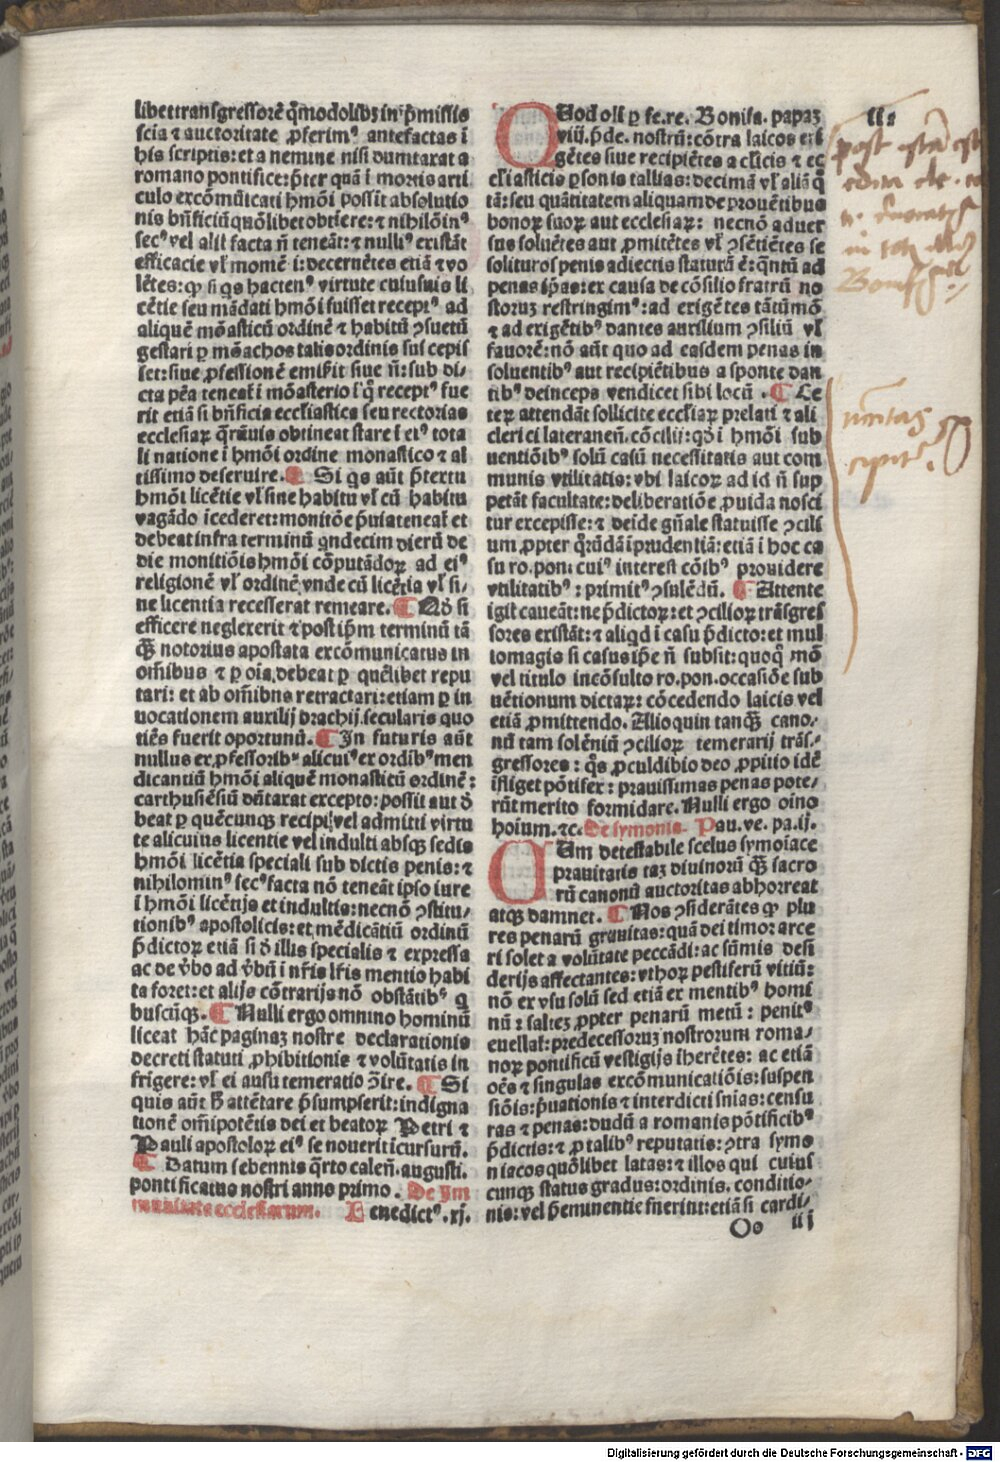 libettransgressorē q̄modolibꝫ in p̄missis
scīa ⁊ auctoritate ꝓferimꝰ antefactas ī
his scriptis: et a nemine nisi dumtaxat a
romano pontifice: p̄ter quā ī mortis arti
culo excōmūicati hmōi possit absolutio
nis bn̄ficiū quōlibet obtīere: ⁊ nihilōinꝰ
secꝰ vel alit facta n̄ teneāt: ⁊ nulliꝰ existāt
efficacie vl̓ momēti: decernētes etiā ⁊ vo
lētes: ꝙ si q̇s hactenꝰ virtute cuiusuis li
cētie seu mādati hmōi fuisset receptꝰ ad
aliquē mōasticū ordinē ⁊ habitū ꝯsuetū
gestari ꝑ mōachos talis ordinis sui cepis
set: siue ꝓfessionē emiserit siue n̄: sub di
cta pēa teneat̓ ī mōasterio ī q̇ receptꝰ fue
rit etiā si bn̄ficia eccl̓iastica seu rectorias
ecclesiaꝝ q̄ꝫuis obtineat stare ī eiꝰ tota
li natione ī hmōi ordine monastico ⁊ al
tissimo deseruire. ¶ Si q̇s aūt p̄textu
hmōi licētie vl̓ sine habitu vl̓ cū habitu
vagādo īcederet: monitōe p̄uia teneat̓ et
debeat infra terminū qndecim dierū de
die monitiōis hmōi cōputādoꝝ ad eiꝰ
religionē vl̓ ordinē vnde cū licētia vl̓ si/
ne licentia recesserat remeare. ¶ Qđ si
efficere neglexerit ⁊ post ip̄m terminū tā
q̄ꝫ notorius apostata excōmunicatus in
om̄ibus ⁊ ꝑ oīa debeat ꝑ quēlibet repu
tari: et ab om̄ibus retractari: etiam ꝑ in
uocationem auxilij brachij secularis quo
tiēs fuerit oportunū. ¶ In futuris aūt
nullus ex ꝓfessoribꝰ alicuiꝰ ex ordībꝰ men
dicantiū hmōi aliquē monasticū ordinē:
carthusiēsiū dūtaxat excepto: possit aut đ
beat ꝑ quēcunqꝫ recipi vel admitti virtu
te alicuius licentie vel indulti absqꝫ sedis
hmōi licētia speciali sub dictis penis: ⁊
nihilominꝰ secꝰ facta nō teneāt ipso iure
ī hmōi licētijs et indultis: necnō ꝯstitu/
tionibꝰ apostolicis: et mēdicātiū ordinū
p̄dictoꝝ etiā si đ illis specialis ⁊ expressa
ac de v̓bo ad v̓bū ī nr̄is lr̄is mentio habi
ta foret: et alijs cōtrarijs nō obstātibꝰ q
buscūqꝫ. ¶ Nulli ergo omnino hominū
liceat hāc paginaꝫ nostre declarationis
decreti statuti ꝓhibitionis ⁊ volūtatis in
frigere: vl̓ ei ausu temeratio ꝯ̄ire. ¶ Si
quis aūt h̄ attētare p̄sumpserit: indigna
tionē om̄ipotētis dei et beatoꝝ Petri ⁊
Pauli apostoloꝝ eiꝰ se nouerit īcursurū.
¶ Datum sebennis q̄rto calen̄. augusti.
pontificatus nostri anno primo. De im
munitate ecclesiarum. Benedictꝰ .xj.
QUod oli ꝑ fe. re. Bonifa. papaꝫ
viij. p̄de. nostrū: cōtra laicos exi
gētes siue recipiētes a cl̓icis ⁊ ec
cl̓iasticis ꝑsonis tallias: decimā vl̓ aliā q̄
tā: seu quātitatem aliquam de prouētibus
bonoꝝ suoꝝ aut ecclesiaꝝ: necnō aduer
sus soluētes aut ꝓmitētes vl̓ ꝯsētiētes se
solituros penis adiectis statutū ē: q̄ntū ad
penas ip̄as: ex causa de cōsilio fratrū no
stoꝝ restringimꝰ: ad exigētes tātūmō
⁊ ad exigētibꝰ dantes auxilium ꝯsiliū vl̓
fauorē: nō aūt quo ad easdem penas in
soluentibꝰ aut recipiētibus a sponte dan
tibꝰ deinceps vendicet sibi locū. ¶ Ce
teꝝ attendāt sollicite eccl̓iaꝝ prelati ⁊ ali
clerici lateraneñ. cōcilij: qđ ī hmōi sub
uentiōibꝰ solū casū necessitatis aut com
munis vtilitatis: vbi laicoꝝ ad id n̄ sup
petāt facultate: deliberatiōe ꝓuida nosci
tur excepisse: ⁊ deide gn̄ale statuisse ꝯcili
um ꝓpter q̄rūdā īprudentiā: etiā ī hoc ca
su ro. pon. cuiꝰ interest cōibꝰ prouidere
vtilitatibꝰ: primitꝰ ꝯsulēdū. ¶ Attente
igit̓ caueāt: ne p̄dictoꝝ: et ꝯcilioꝝ trāsgres
sores existāt: ⁊ aliqđ ī casu p̄dicto: et mul
tomagis si casus ip̄e n̄ subsit: quoq̇ mō
vel titulo incōsulto ro. pon. occasiōe sub
uētionum dictaꝝ: cōcedendo laicis vel
etiā ꝓmittendo. Alioquin tanq̄ꝫ cano/
nū tam solēniū ꝯcilioꝝ temerarij trās/
gressores: q̇s ꝓculdibio deo ꝓpitio idē
īfliget pōtifex: prauissimas penas pote/
rūt merito formidare. Nulli ergo oīno
hoīum. ⁊c. De symonia. Pau. ve. pa. ij.
CUm detestabile scelus symoīace
prauitatis taꝫ diuinorū q̄ꝫ sacro
rū canonū auctoritas abhorreat
atqꝫ damnet. ¶ Nos ꝯsiderātes ꝙ plu
res penarū grauitas: quā dei timor arce
ri solet a volūtate peccādi: ac sūmis desi
derijs affectantes: vt hoꝝ pestiferū vitiū:
nō ex vsu solū sed etiā ex mentibꝰ homi
nū: salteꝫ ꝓpter penarū metū: penitꝰ
euellat̓: predecessoꝝ nostrorum roma/
noꝝ pontificū vestigijs īherētes: ac etiā
oēs ⁊ singulas excōmunicatiōis: suspen
siōis: p̄uationis ⁊ interdicti sn̄ias: censu
ras ⁊ penas: dudū a romanis pōtificibꝰ
p̄dictis: ⁊ ꝓ talibꝰ reputatis: ꝯtra symo
niacos quōlibet latas: ⁊ illos qui cuius
cunqꝫ status gradus: ordinis. conditio/
nis: vel p̄eminentie fuerint: etiā si cardi/
Oo iij
post